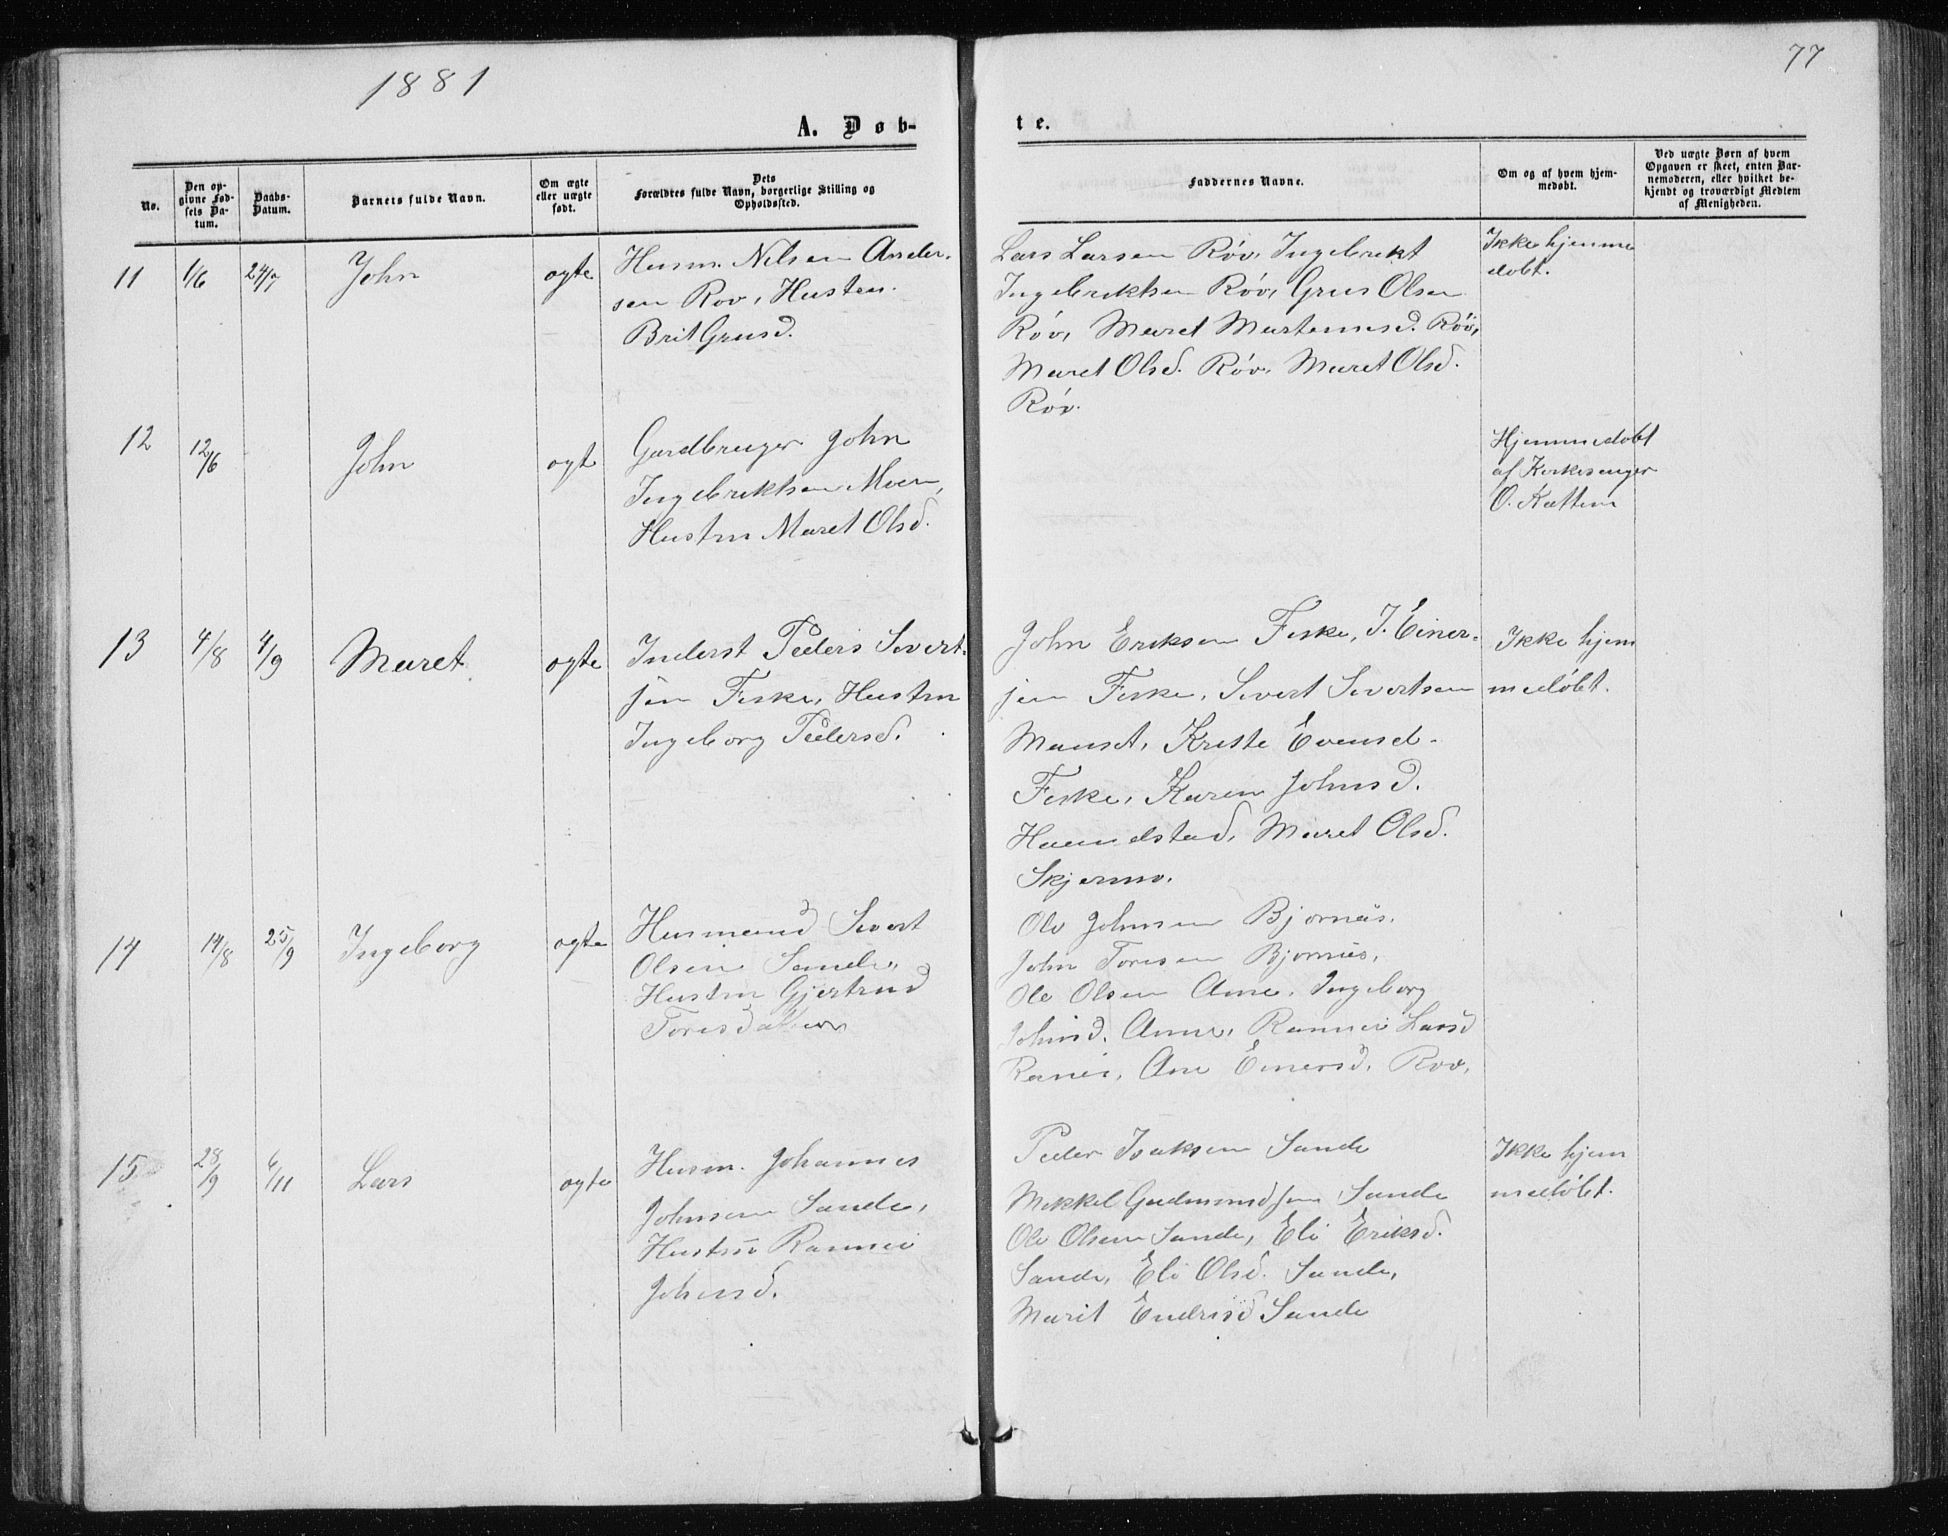 1881
77
A. Døb-
te.
No.
Den op-
givne Fød-
sels Da-
tum.
Daabs-
Datum.
Barnets fulde Navn.
Om ægte
eller uægte
født.
Dets
Forældres fulde Navn, borgerlige Stilling og
Opholdssted.
Faddernes Navne.
Om og af hvem hjem-
medøbt.
Ved uægte Børn af hvem
Opgaven er skeet, enten Bar-
nemoderen, eller hvilket be-
kjendt og troværdigt Medlem
af Menigheden.
11
1/6
24/7
John
ogte
Husm. Nilsen Ander-
sen Rov, Husten
Brit Grusd.
Lars Larsen Røv, Ingebrikt
Ingebriktsen Røv, Grus Olsen
Røv, Maret Martemsd. Røv,
Maret Olsd. Røv, Maret Olsd.
Røv.
Ikke hjemme
dobt.
12
12/6
John
ogt
Gardbruger John
Ingebriktsen Moen,
Hustru Maret Olsd.
Hjemmedobt
af Kirkesanger
O. Kattem
13
4/8
4/9
Maret
ogte
Inderst Peders Sivert-
sen Feske, Hustru
Ingeborg Pedersd.
John Eriksen Feske, J. Einer-
sen Feske, Sivert Sivertsen
Manset, Kriste Evensd.
Feske, Karen Johnsd.
Haamdstad, Maret Olsd.
Skjermo.
Ikke hjem
medøbt.
14
14/8
25/9
Ingeborg
ogte
Husmand Sivert
Olsen Sande,
Hustru Gjertrud
Toresdatter
Ole Johnsen Bjørnås,
John Toresen Bjornås,
Ole Olsen Ane, Ingeborg
Johnsd. Anne, Rannei Larsd
Ranei, Ane Einersd. Rov,
15
28/9
6/11
Lars
ogte
Husm. Johannes
Johnsen Sande,
Hustru Rannei
Johnsd.
Peder Isaksen Sande
Mikkel Gudmundsen Sande
Ole Olsen Sande, Eli Eriksd.
Sande, Eli Olsd. Sande,
Marit Endresd Sande
Ikke hjem
medøbt.